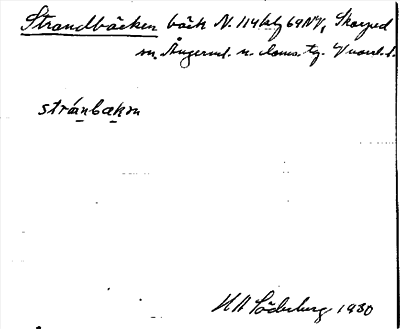 Strandbäcken bäck N. 114 kbg 69NV, Skorped
sn, Ångerml. n. doms. tg. Vnorrl. l.
stránbakɒn
H A Söderberg 1930